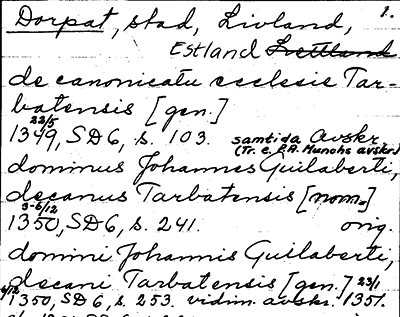 Dorpat, stad, Livland, 1.
Estland Lettland
de canonicatu ecclesie Tar-
batensis [gen.]
22/5
1349, SD6, s. 103. samtida avskr.
(Tr. e. P.A. Munchs avskr.)
dominus Johannes Guilaberti,
decanus Tarbatensis [nom.]
3-6/12
1350, SD6, s. 241. orig.
domini Johannis Guilaberti,
decani Tarbatensis [gen.] 23/1
4/12 1350, SD6, s. 253. vidim. avskr. 1351.